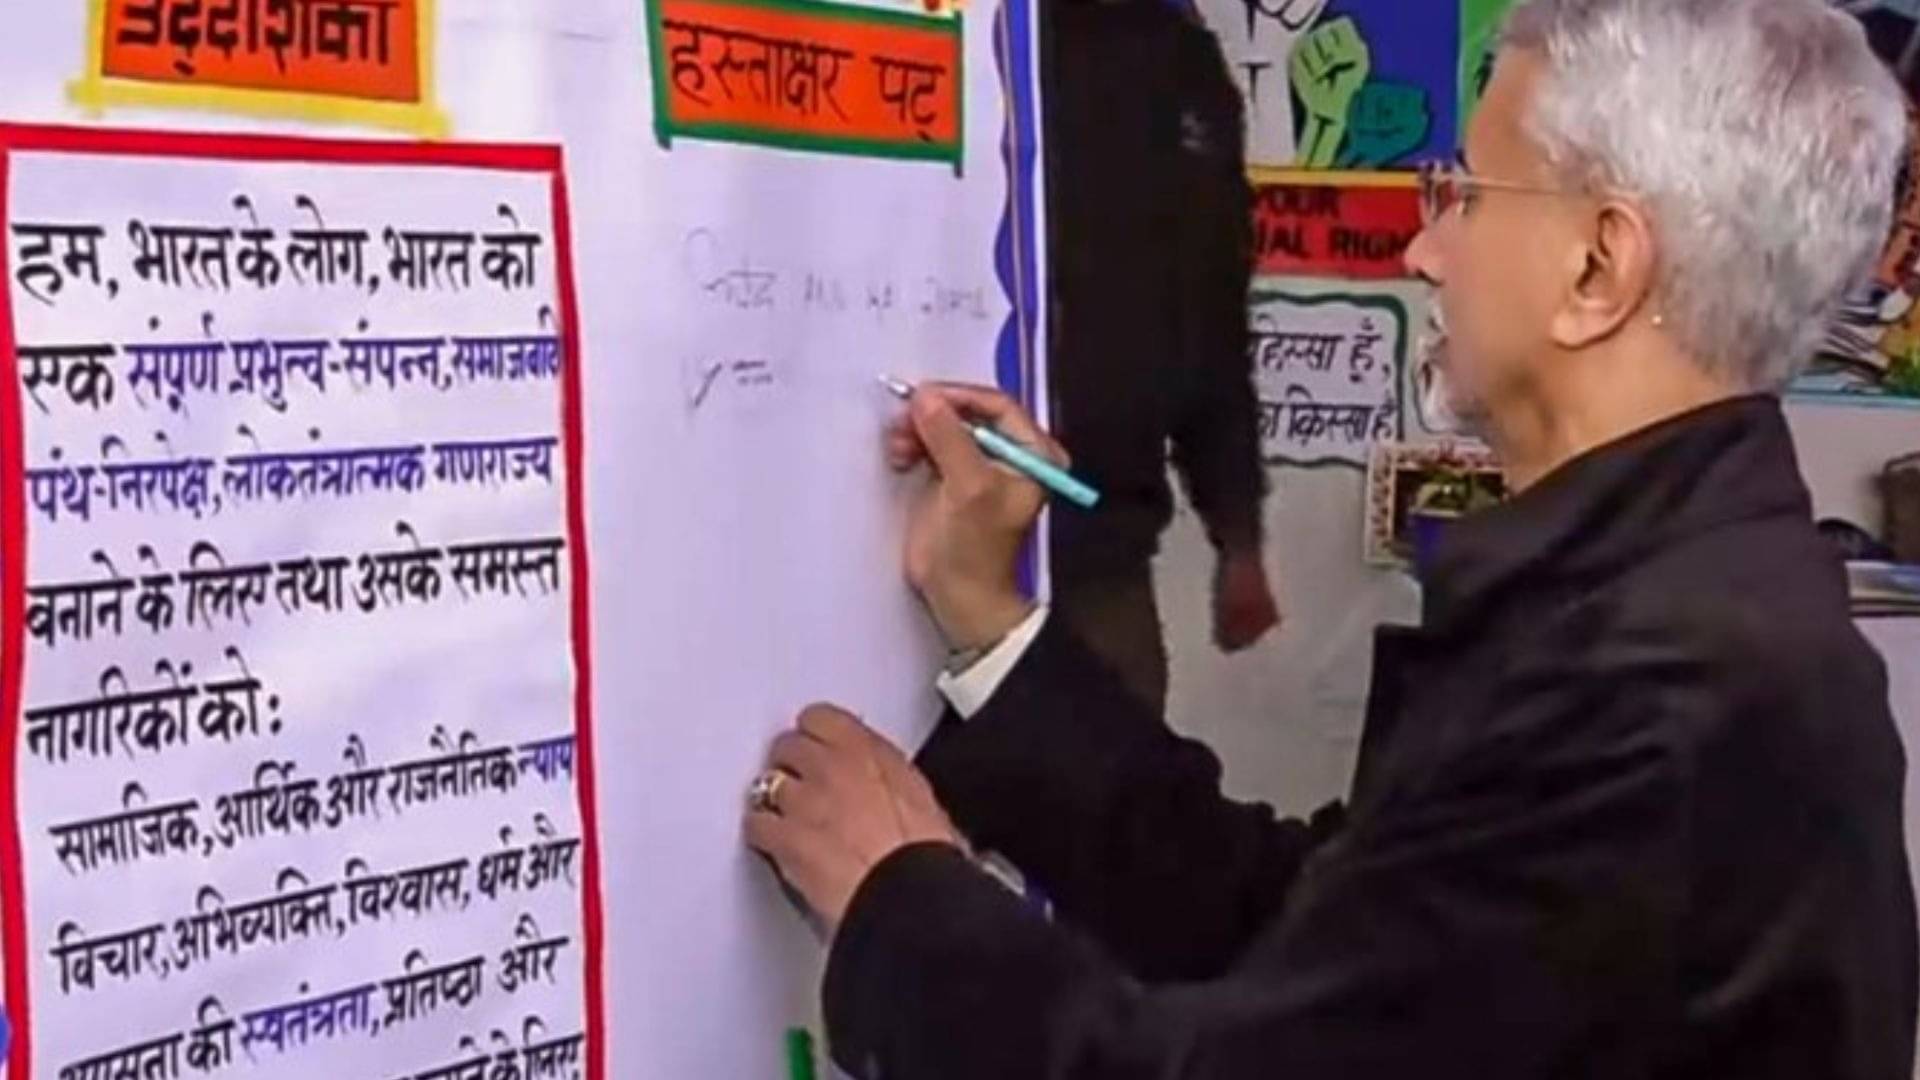 उद्देशिका
हस्ताक्षर पट्
हम, भारत के लोग, भारत को
एक संपूर्ण प्रभुत्व-संपन्न, समाजवादी
पंथ-निरपेक्ष, लोकतंत्रात्मक गणराज्य
बनाने के लिए तथा उसके समस्त
नागरिकों को:
सामाजिक, आर्थिक और राजनैतिक न्याय
विचार, अभिव्यक्ति, विश्वास, धर्म और
की स्वतंत्रता, प्रतिष्ठा और
के लिए
हिस्सा हूँ,
किस्सा है